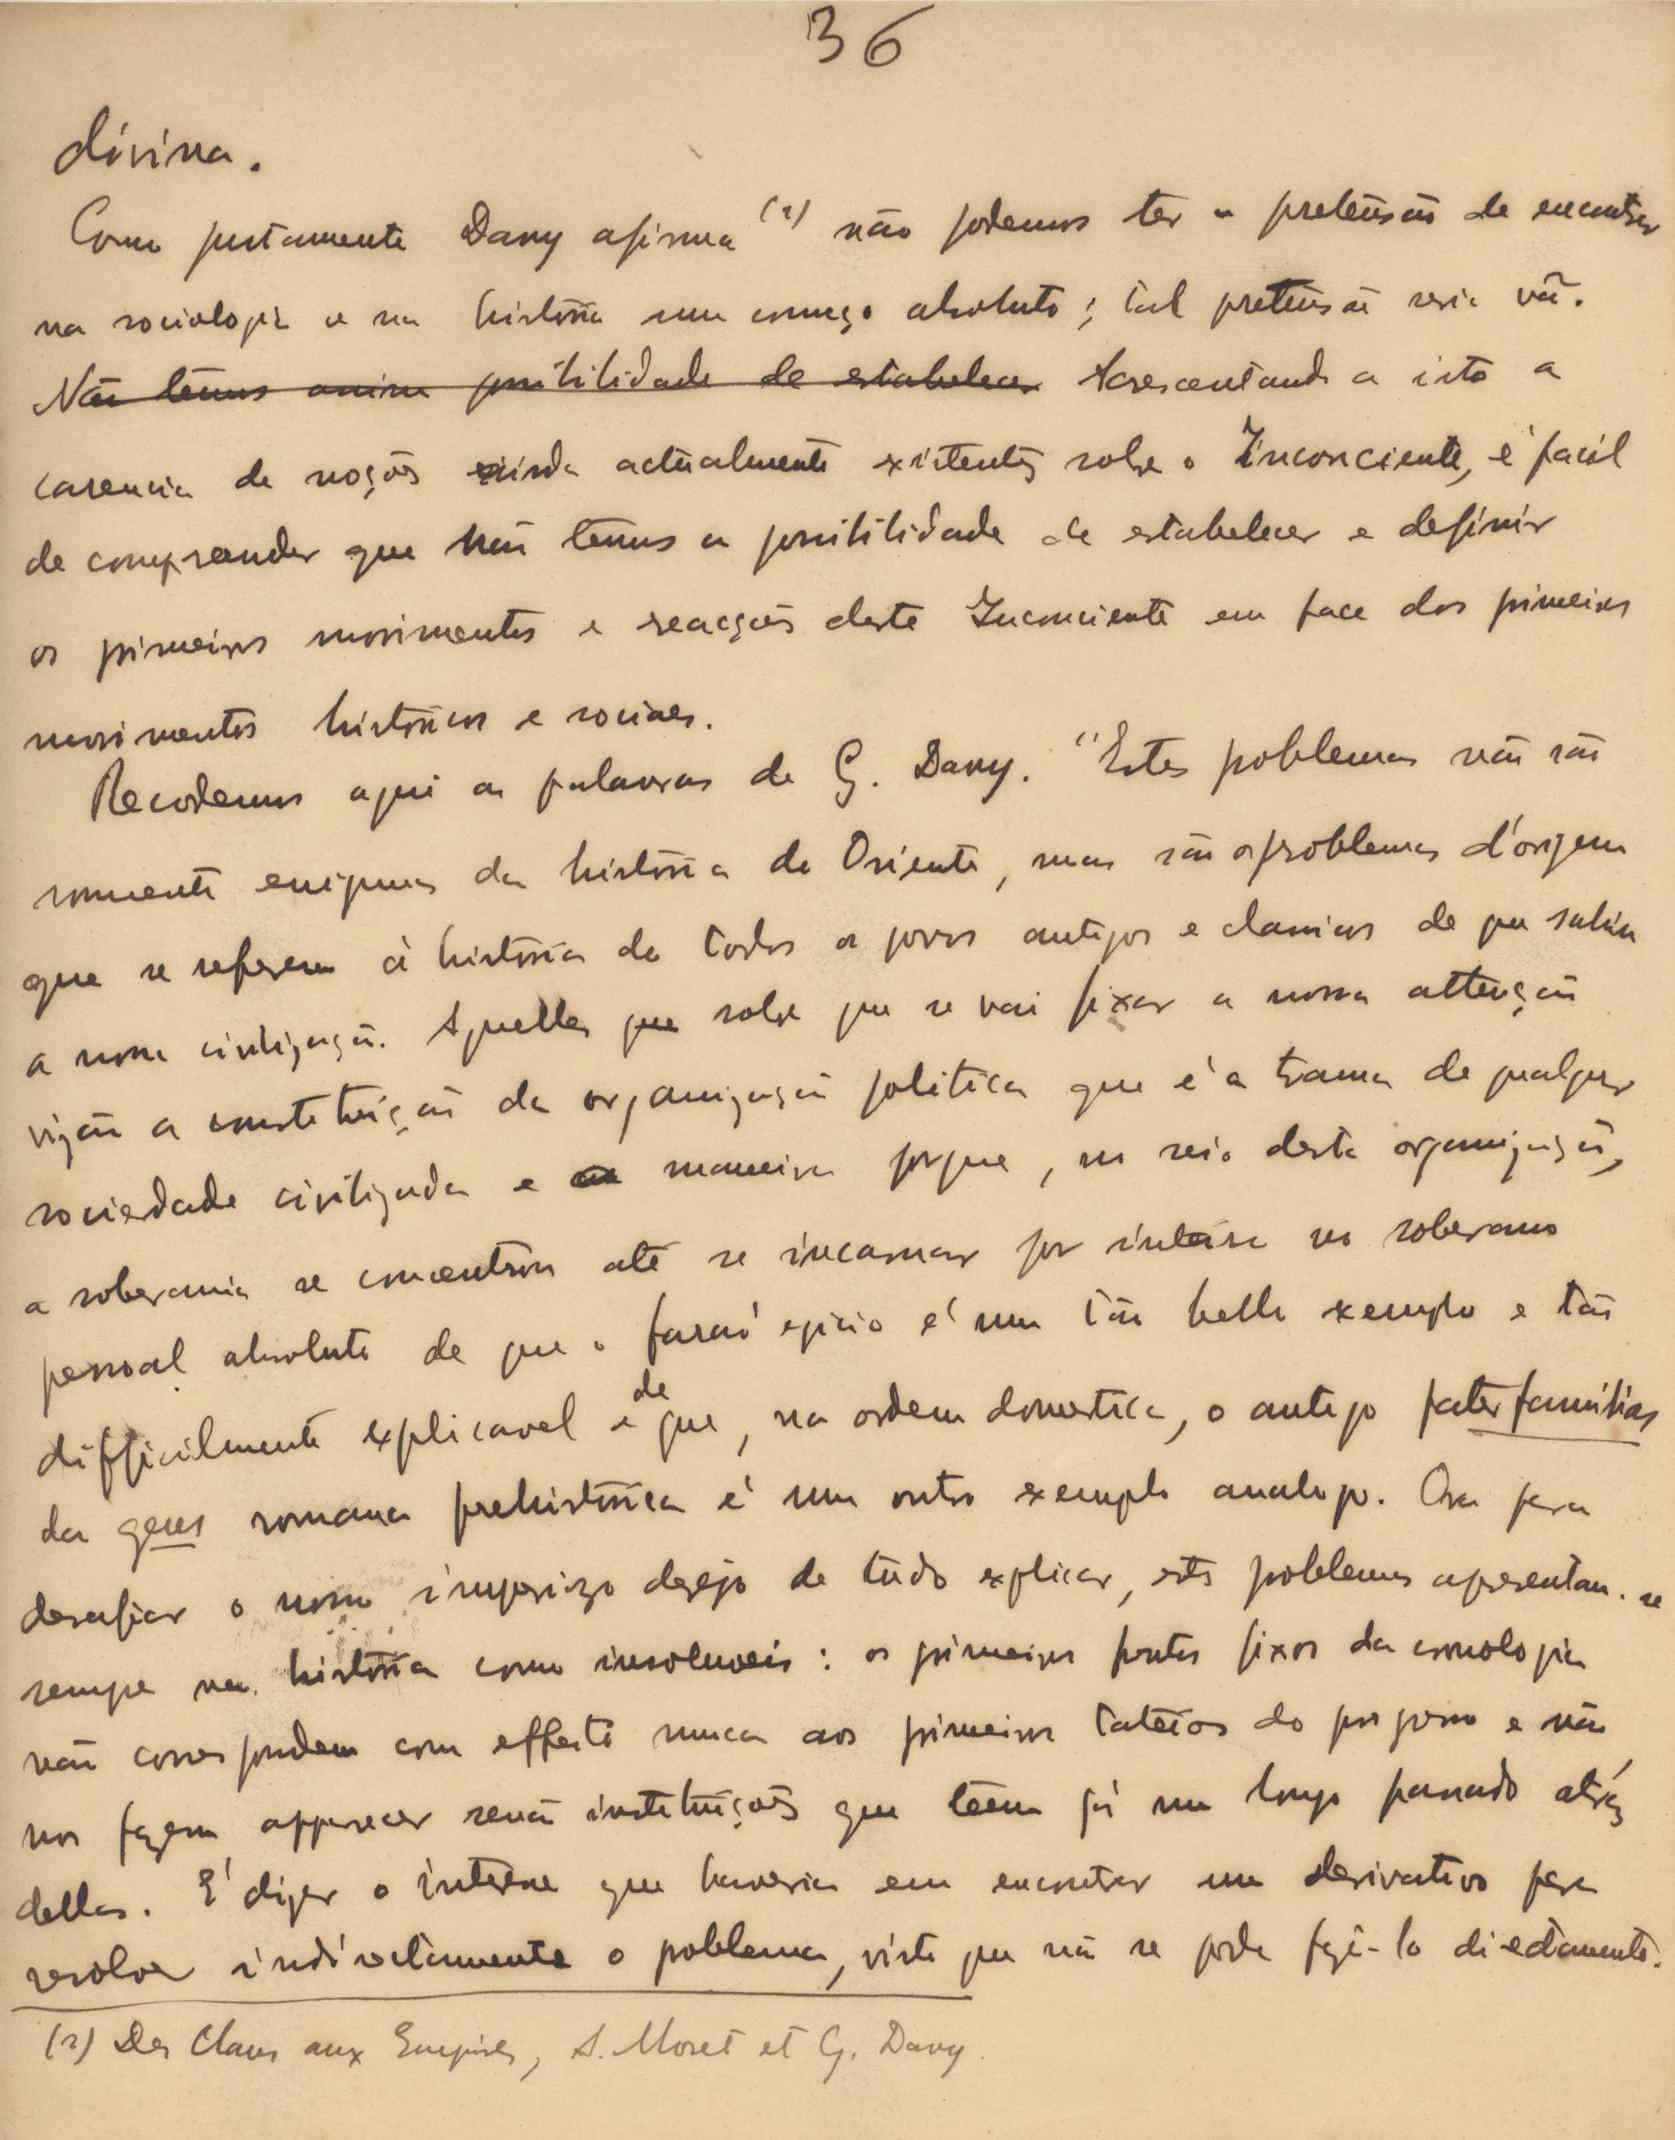 36
divina.
Como justamente Davy afirma (1) não podemos ter a pretensão de encontrar
na sociologia e na história um começo absoluto; tal pretensão seria vã.
Não temos assim possibilidade de estabelecer Acrescentando a isto a
carencia de noções ainda actualmente existentes sobre o Inconciente, é facil
de comprender que não temos a possibilidade de estabelecer e definir
os primeiros movimentos e reacções deste Inconciente em face dos primeiros
movimentos históricos e sociaes.
Recordemos aqui as palavras de G. Davy. "Estes problemas não são
somente enigmas da história do Oriente, mas são os problemas d'origem
que se referem á história de todos os povos antigos e classicos de que sahiu
a nossa civilização. Aquelles que sobre que se vai fixar a nossa attenção
vizão a constituição da organização politica que é a trama de qualquer
sociedade civilizada e a maneira porque, no seio desta organização,
a soberania se concentrou até se incarnar por inteiro no soberano
pessoal absoluto de que o faraó egicio é um tão bello exemplo e tão
difficilmente explicavel e de que, na ordem domestica, o antigo pater familias
da gens romana prehistórica é um outro exemplo analogo. Ora para
desafiar o nosso imperiozo dezejo de tudo explicar, estes problemas apresentam-se
sempre na história como insoluveis: os primeiros pontos fixos da cronologia
não correspondem com effeito nunca aos primeiros tateios do progresso e não
nos fazem apparecer senão instituições que têem já um longo passado atráz
dellas. É dizer o interesse que haveria em encontrar um derivativo para
resolver indirectamente o problema, visto que não se pode fazê-lo directamente.
(1) Des Clans aux Empires, A. Moret et G. Davy.